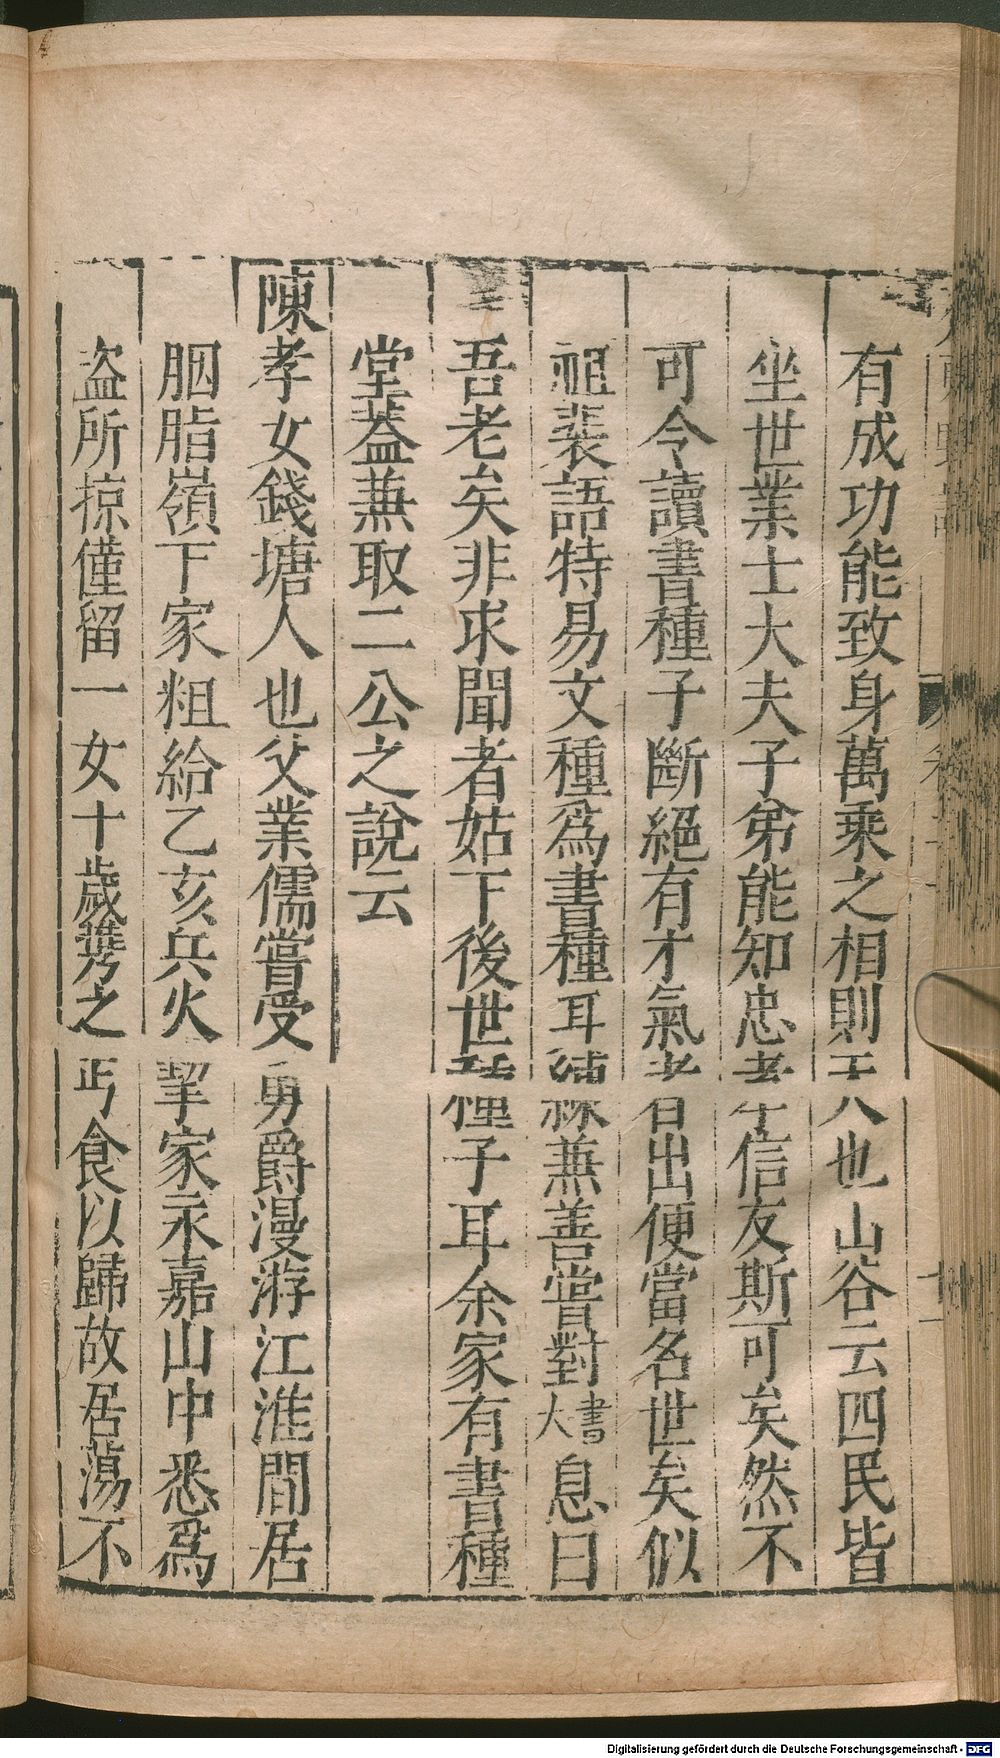 有成功能致身萬乘之相則天人也山谷云四民皆
坐世業士大夫子弟能知忠孝信友斯可矣然不
可令讀書種子斷絕有才氣者出便當名世矣似
祖裴語特易文種為書種耳練兼善嘗對書大息曰
吾老矣非求聞者姑下後世種子耳余家有書種
堂蓋兼取二公之說云
陳孝女錢塘人也父業儒嘗受勇爵漫游江淮間居
胭脂嶺下家粗給乙亥兵火挈家永嘉山中悉為
盜所掠僅留一女十歲携之丐食以歸故居蕩不
Digitalisierung gefördert durch die Deutsche Forschungsgemeinschaft - DFG